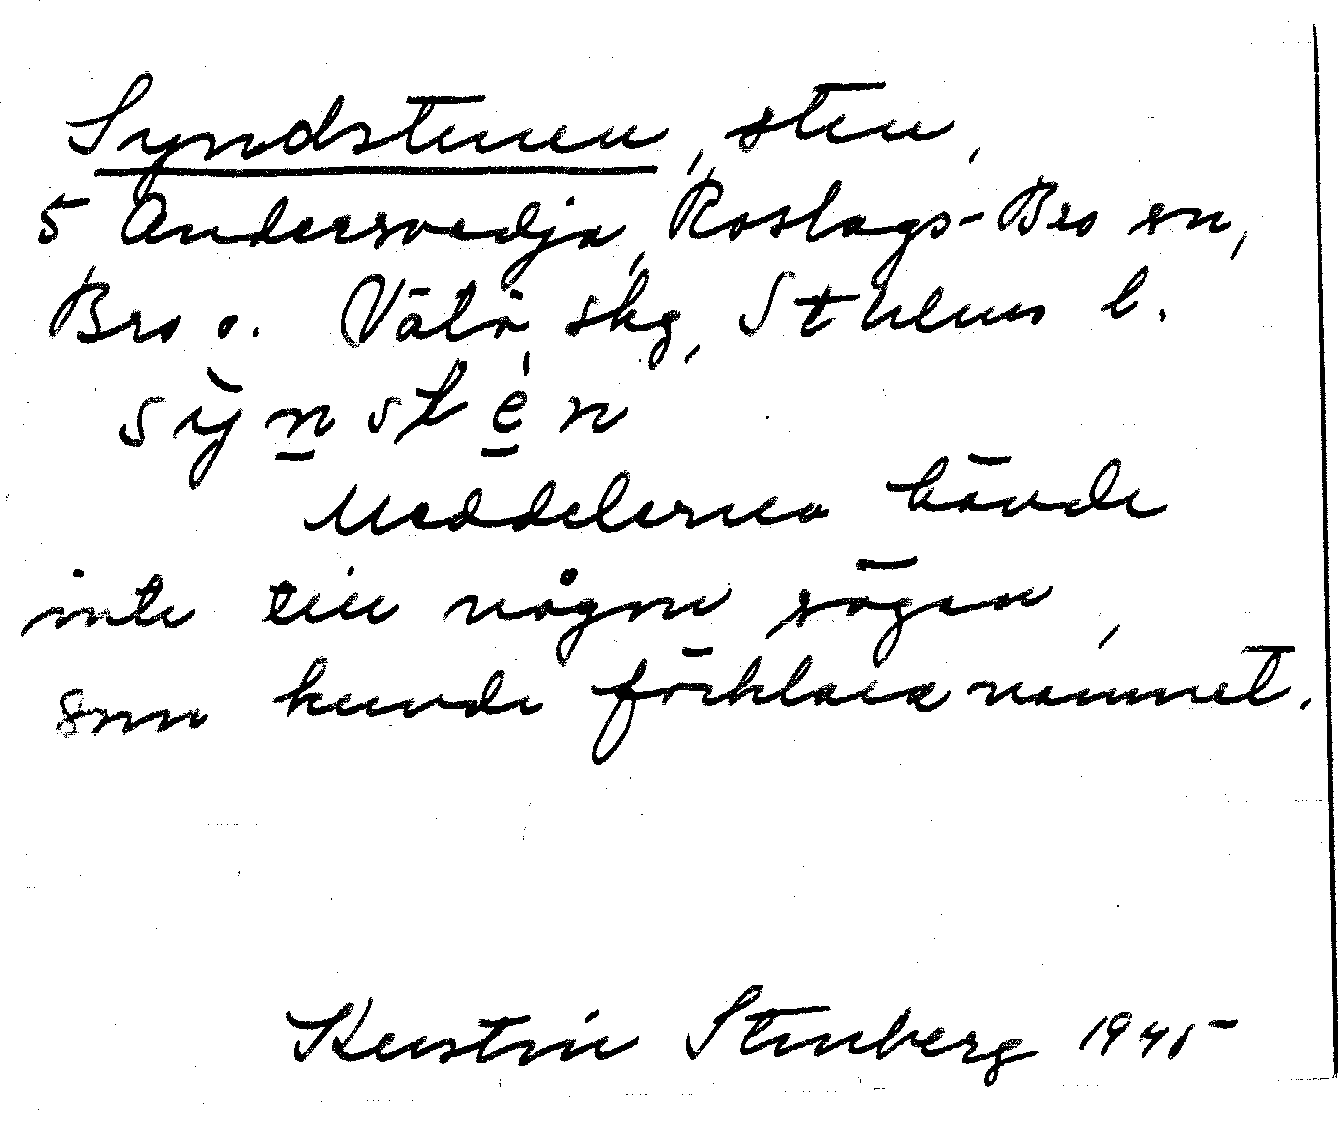 Syndstenen, sten,
5 Andersvedja, Roslags-Bro sn,
Bro o. Vätö skg, Sthlms l.
sy̆n̲sté̲n
Meddelerna hävde
inte till någon sägen,
som kunde förklara namnet.
Kerstin Stenberg 1945